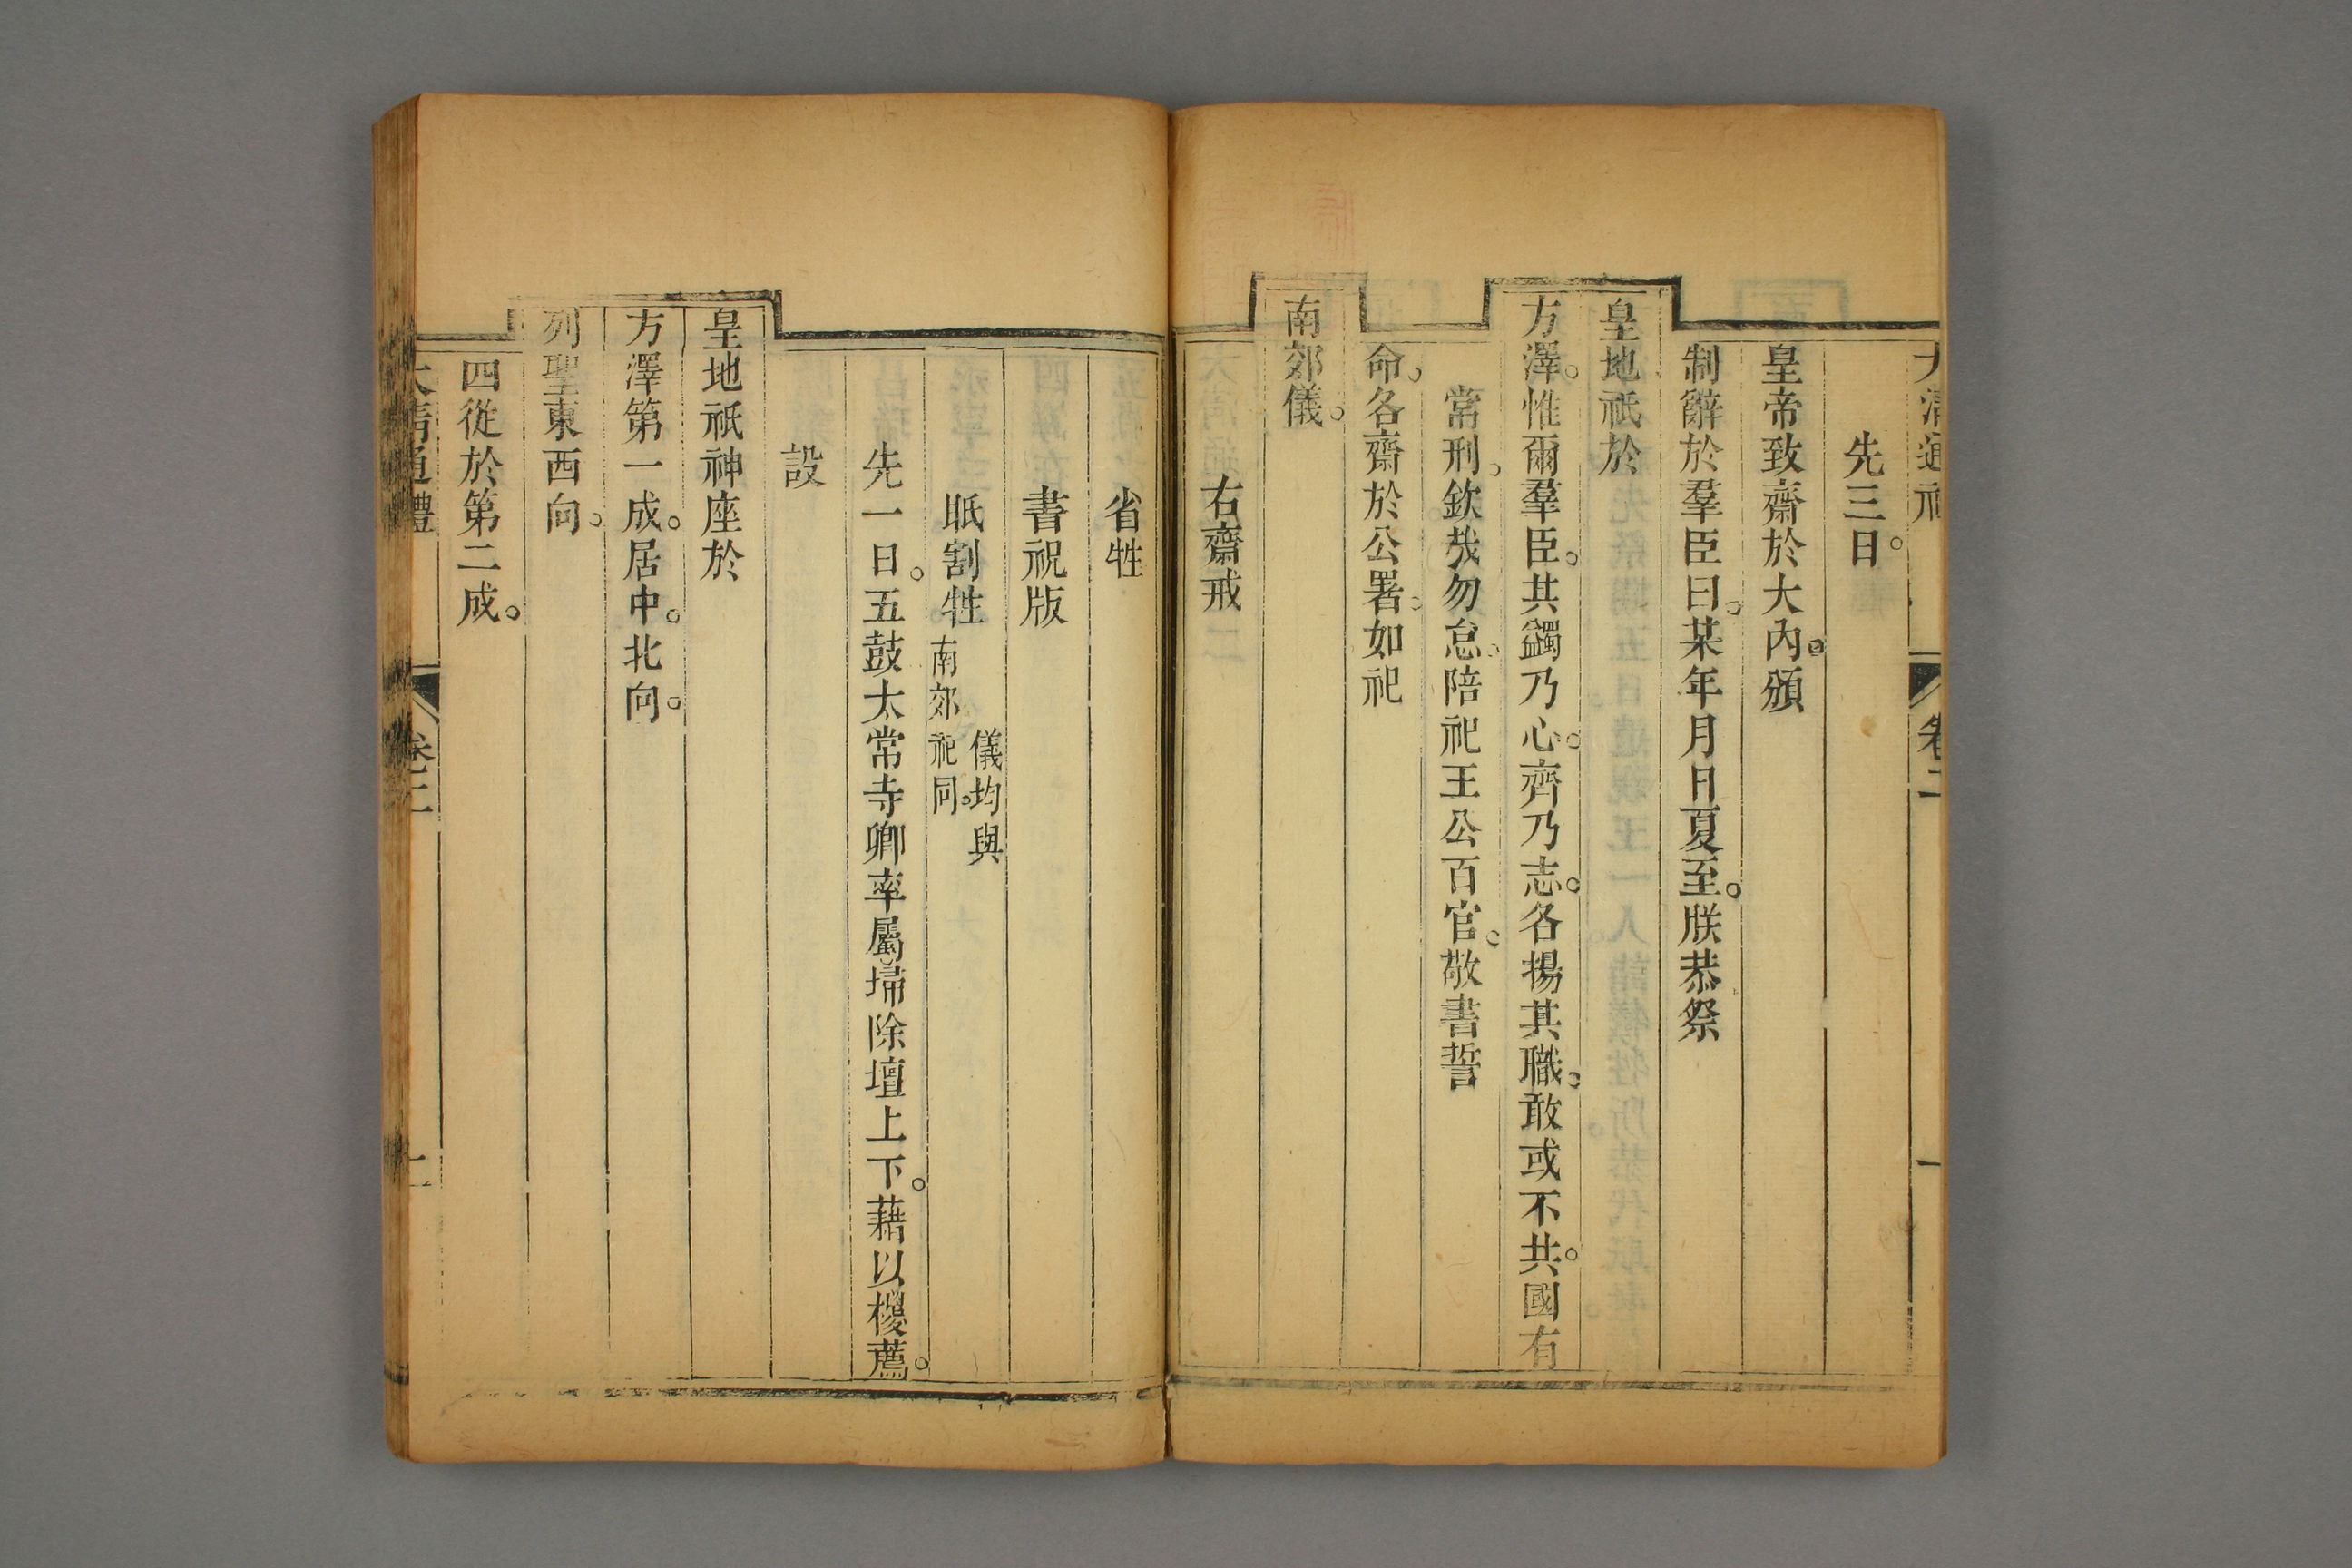 先三日。
皇帝致齋於大內。頒
制辭於羣臣曰。某年月日夏至。朕恭祭
皇地祇於
方澤。惟爾羣臣。其蠲乃心。齊乃志。各揚其職。敢或不共。國有
常刑。欽哉勿怠。陪祀王公百官。敬書誓
命。各齋於公署。如祀
南郊儀。
右齋戒
省牲
書祝版
眡割牲儀均與南郊祀同。
先一日。五鼓太常寺卿率屬埽除壇上下。藉以椶薦。
設
皇地祇神座於
方澤第一成。居中。北向。
列聖東西向。
四從於第二成。
大清通禮 卷二 二